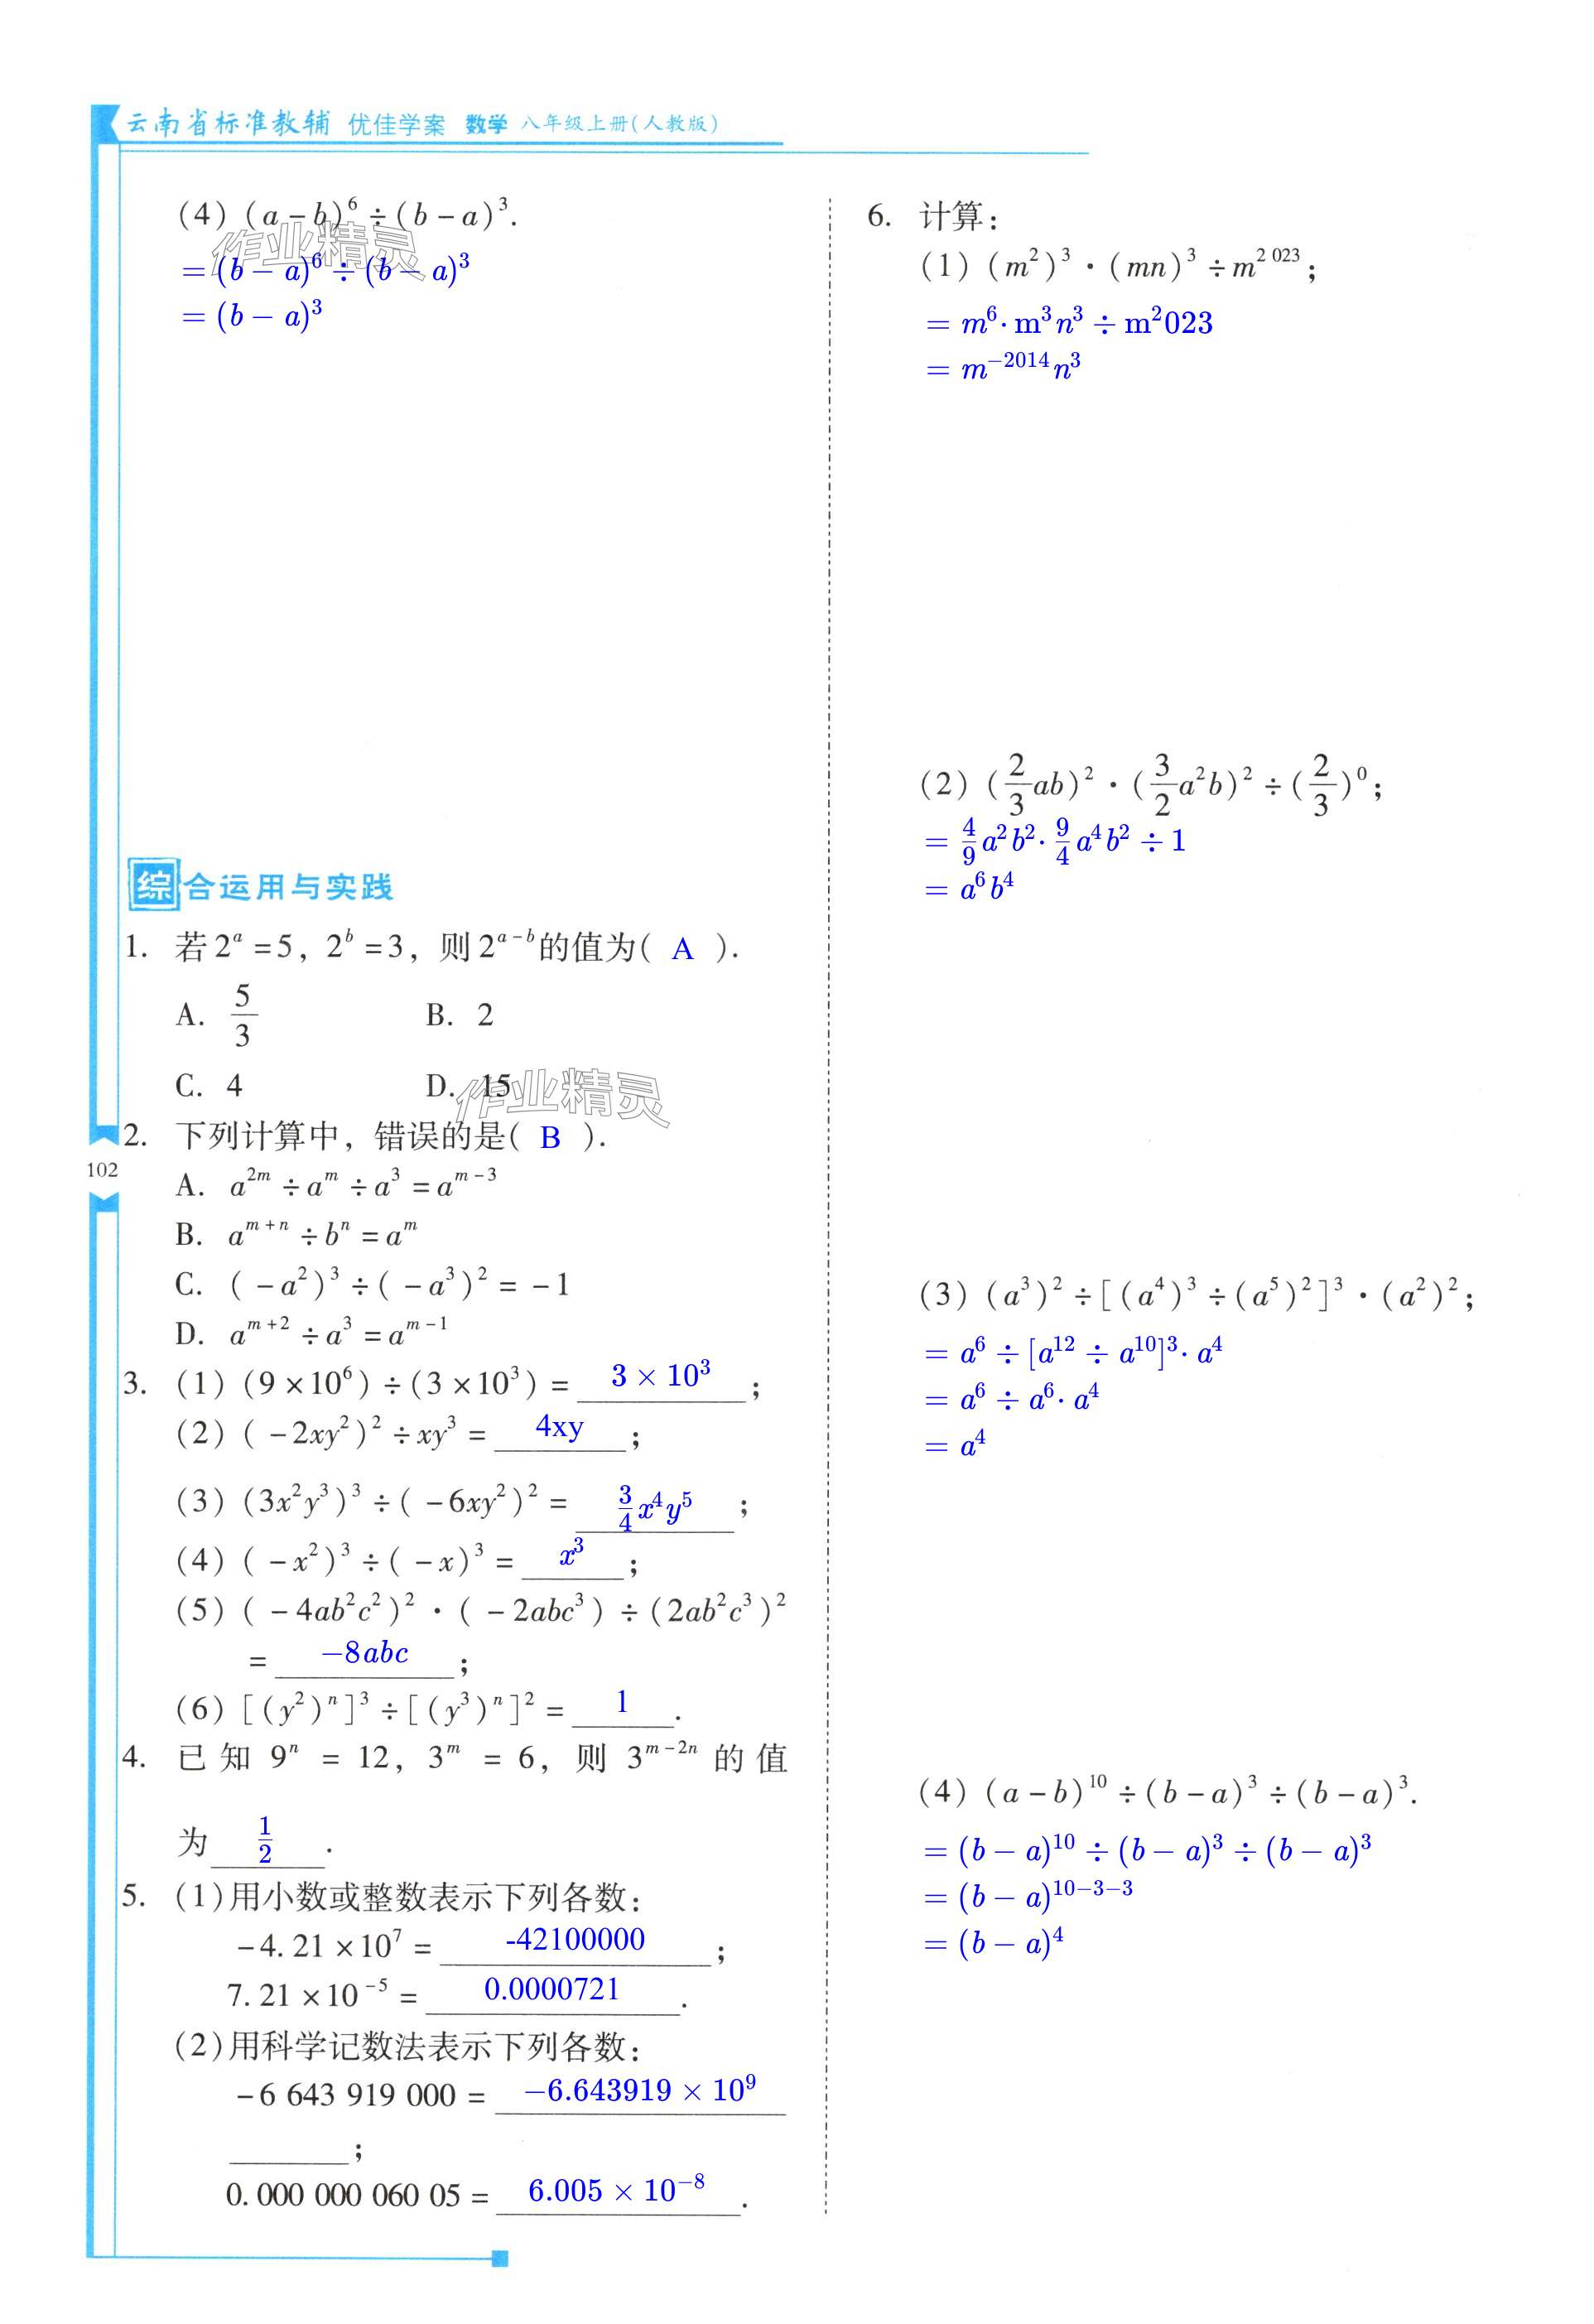 云南省标准教辅 优佳学案 数学 八年级上册(人教版)
(4) (a-b)⁶÷(b-a)³.
作业精灵
=(b-a)⁶÷(b-a)³
=(b-a)³
综合运用与实践
1. 若2ᵃ=5, 2ᵇ=3, 则2ᵃ⁻ᵇ的值为( A ).
A. 5/3 B. 2
C. 4 D. 15
作业精灵
2. 下列计算中, 错误的是( B ).
A. a²ᵐ÷aᵐ÷a³=aᵐ⁻³
B. aᵐ⁺ⁿ÷bⁿ=aᵐ
C. (-a²)³÷(-a³)²=-1
D. aᵐ⁺²÷a³=aᵐ⁻¹
3. (1) (9×10⁶)÷(3×10³)= 3×10³ ;
(2) (-2xy²)²÷xy³= 4xy ;
(3) (3x²y³)³÷(-6xy²)²= 3/4 x⁴y⁵ ;
(4) (-x²)³÷(-x)³= x³ ;
(5) (-4ab²c²)²·(-2abc³)÷(2ab²c³)²
= -8abc ;
(6) [(y²)ⁿ]³÷[(y³)ⁿ]²= 1 .
4. 已知 9ⁿ = 12, 3ᵐ = 6, 则 3ᵐ⁻²ⁿ 的值
为 1/2 .
5. (1)用小数或整数表示下列各数:
-4.21×10⁷= -42100000 ;
7.21×10⁻⁵= 0.0000721 .
(2)用科学记数法表示下列各数:
-6 643 919 000= -6.643919×10⁹
;
0.000 000 060 05= 6.005×10⁻⁸ .
102
6. 计算:
(1) (m²)³·(mn)³÷m²⁰²³;
=m⁶·m³n³÷m²023
=m⁻²⁰¹⁴n³
(2) (2/3 ab)²·(3/2 a²b)²÷(2/3)⁰;
=4/9 a²b²·9/4 a⁴b²÷1
=a⁶b⁴
(3) (a³)²÷[(a⁴)³÷(a⁵)²]³·(a²)²;
=a⁶÷[a¹²÷a¹⁰]³·a⁴
=a⁶÷a⁶·a⁴
=a⁴
(4) (a-b)¹⁰÷(b-a)³÷(b-a)³.
=(b-a)¹⁰÷(b-a)³÷(b-a)³
=(b-a)¹⁰⁻³⁻³
=(b-a)⁴